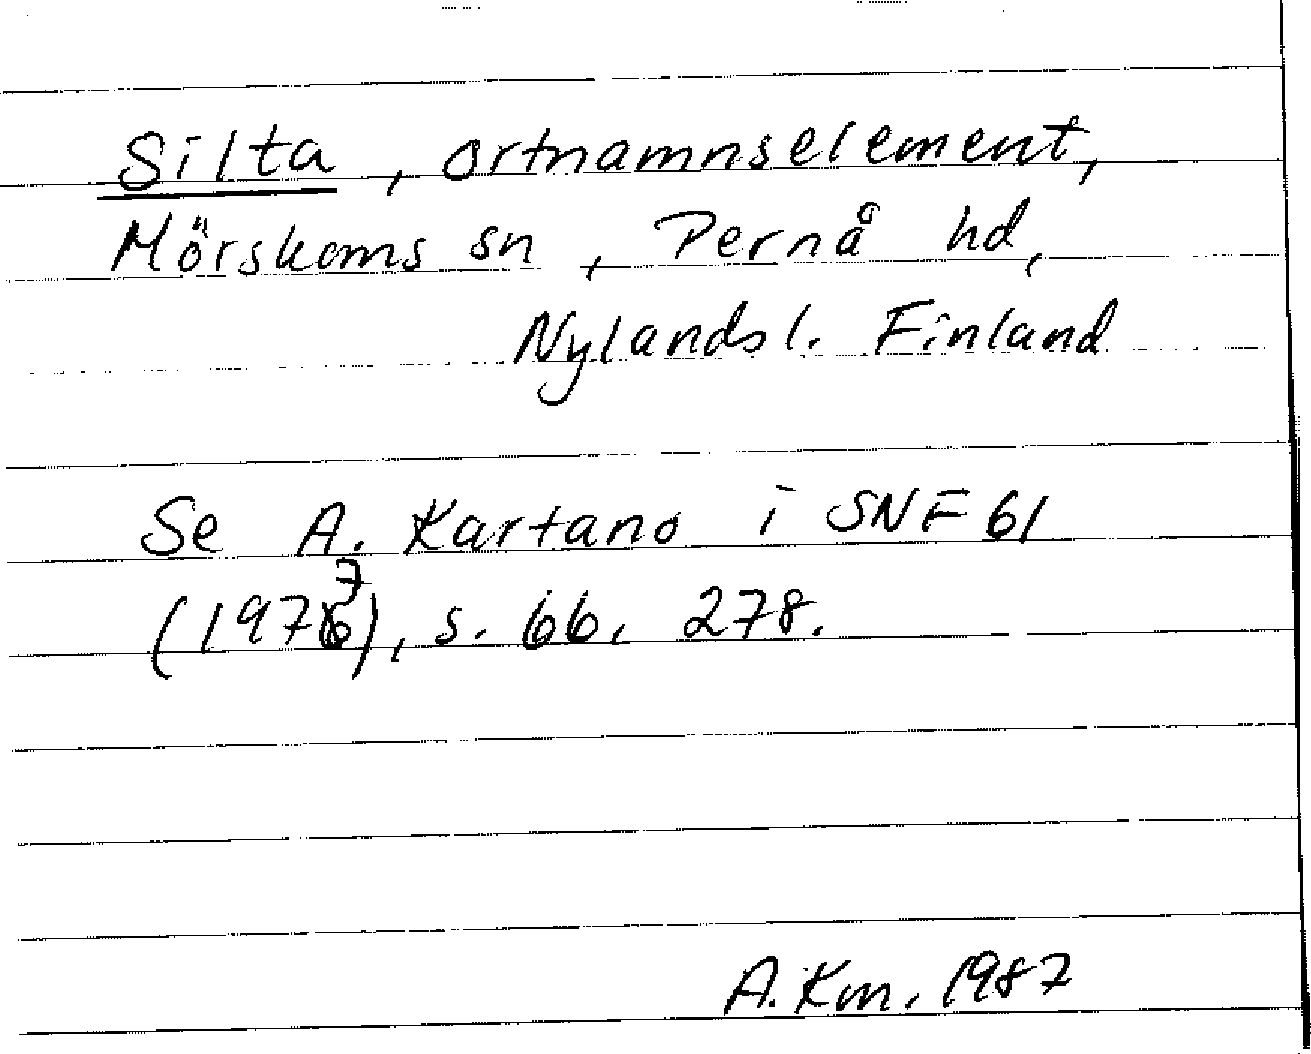 Silta, ortnamnselement,
Mörskoms sn, Pernå hd,
Nylands l. Finland
Se A. Kartano i SNF 61
(1973), s. 66, 278.
A. Km. 1987